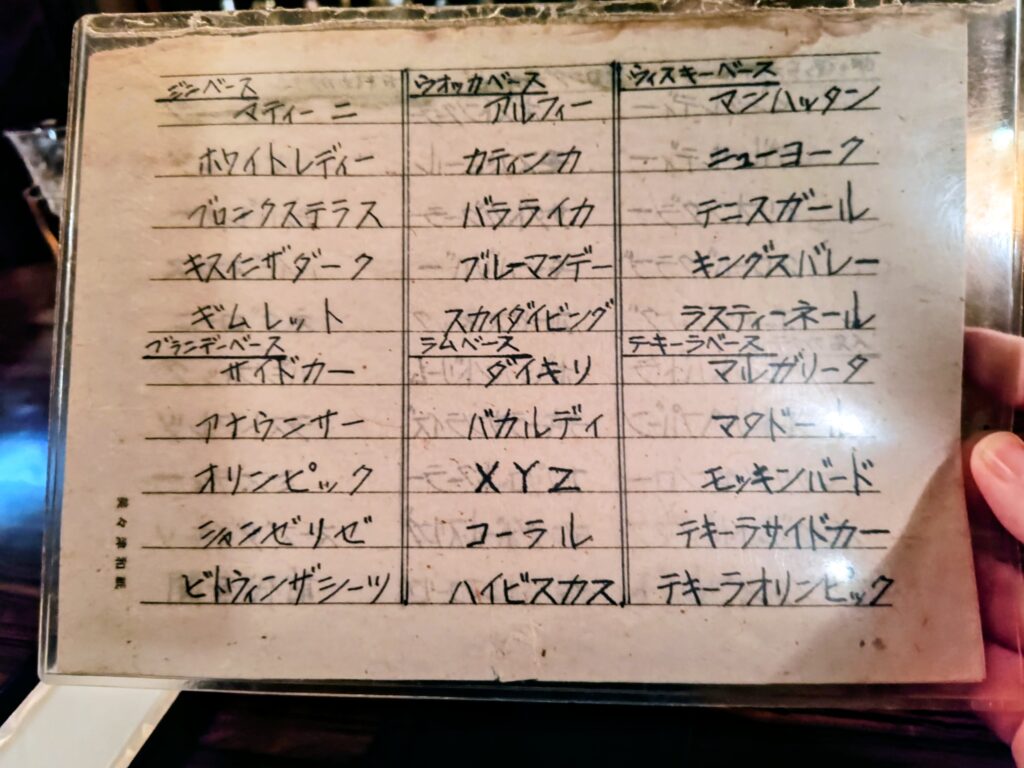 ジンベース
マティーニ
ホワイトレディー
ブロンクステラス
キスインザダーク
ギムレット
ブランデーベース
サイドカー
アナウンサー
オリンピック
シャンゼリゼ
ビトウィンザシーツ
ウオッカベース
アルフィー
カティンカ
バラライカ
ブルーマンデー
スカイダイビング
ラムベース
ダイキリ
バカルディ
XYZ
コーラル
ハイビスカス
ウィスキーベース
マンハッタン
ニューヨーク
テニスガール
キングスバレー
ラスティーネール
テキーラベース
マルガリータ
マタドール
モッキンバード
テキーラサイドカー
テキーラオリンピック